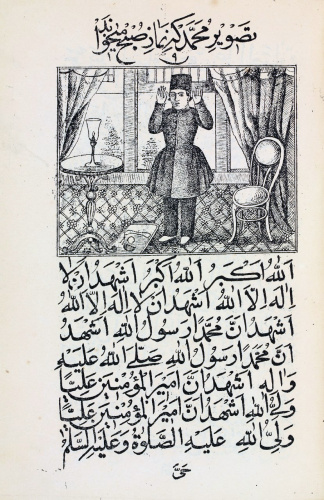 تصویر محمد که نماز صبح میخواند
۹
اَللهُ اَکْبَرْ اَللهُ اَکْبَرْ اَشْهَدُ اَنْ لا
اِلهَ اِلاَّ اللهُ اَشْهَدُ اَنْ لا اِلهَ اِلاَّ اللهُ
اَشْهَدُ اَنَّ مُحَمَّدًا رَسُولُ اللهِ اَشْهَدُ
اَنَّ مُحَمَّدًا رَسُولُ اللهِ صَلَّی اللهُ عَلَیْهِ
وَ الِهِ اَشْهَدُ اَنَّ اَمیرَ الْمُؤْمِنینَ عَلِیًّا
وَلِیُّ اللهِ اَشْهَدُ اَنَّ اَمیرَ الْمُؤْمِنینَ عَلِیًّا
وَلِیُّ اللهِ عَلَیْهِ الصَّلوةُ وَ عَلَیْهِ السَّلامُ
حَیَّ